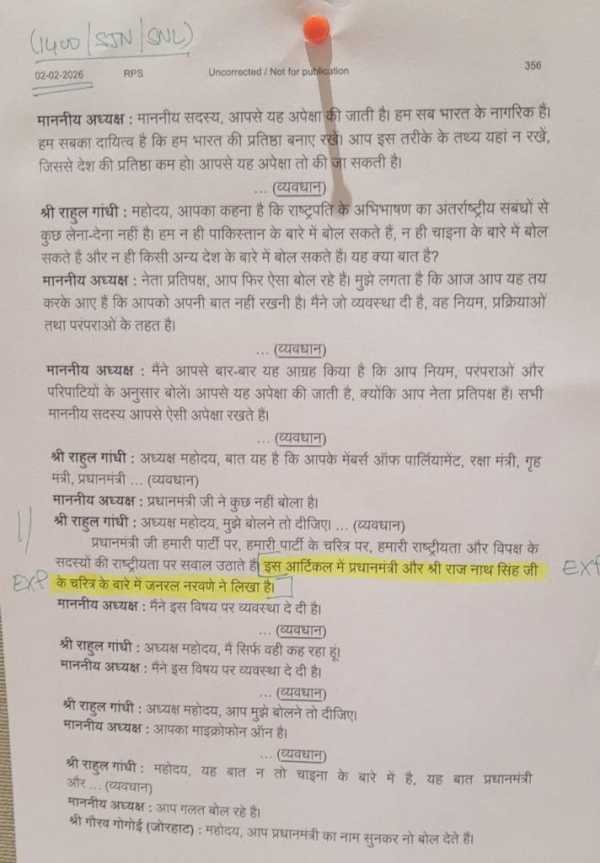 (1400/SJN/SNL)
02-02-2026 RPS Uncorrected / Not for publication 356
माननीय अध्यक्ष : माननीय सदस्य, आपसे यह अपेक्षा की जाती है। हम सब भारत के नागरिक हैं।
हम सबका दायित्व है कि हम भारत की प्रतिष्ठा बनाए रखें। आप इस तरीके के तथ्य यहां न रखें,
जिससे देश की प्रतिष्ठा कम हो। आपसे यह अपेक्षा तो की जा सकती है।
... (व्यवधान)
श्री राहुल गांधी : महोदय, आपका कहना है कि राष्ट्रपति के अभिभाषण का अंतर्राष्ट्रीय संबंधों से
कुछ लेना-देना नहीं है। हम न ही पाकिस्तान के बारे में बोल सकते हैं, न ही चाइना के बारे में बोल
सकते हैं और न ही किसी अन्य देश के बारे में बोल सकते हैं। यह क्या बात है?
माननीय अध्यक्ष : नेता प्रतिपक्ष, आप फिर ऐसा बोल रहे हैं। मुझे लगता है कि आज आप यह तय
करके आए हैं कि आपको अपनी बात नहीं रखनी है। मैंने जो व्यवस्था दी है, वह नियम, प्रक्रियाओं
तथा परंपराओं के तहत है।
... (व्यवधान)
माननीय अध्यक्ष : मैंने आपसे बार-बार यह आग्रह किया है कि आप नियम, परंपराओं और
परिपाटियों के अनुसार बोलें। आपसे यह अपेक्षा की जाती है, क्योंकि आप नेता प्रतिपक्ष हैं। सभी
माननीय सदस्य आपसे ऐसी अपेक्षा रखते हैं।
... (व्यवधान)
श्री राहुल गांधी : अध्यक्ष महोदय, बात यह है कि आपके मेंबर्स ऑफ पार्लियामेंट, रक्षा मंत्री, गृह
मंत्री, प्रधानमंत्री ... (व्यवधान)
माननीय अध्यक्ष : प्रधानमंत्री जी ने कुछ नहीं बोला है।
श्री राहुल गांधी : अध्यक्ष महोदय, मुझे बोलने तो दीजिए। ... (व्यवधान)
प्रधानमंत्री जी हमारी पार्टी पर, हमारी पार्टी के चरित्र पर, हमारी राष्ट्रीयता और विपक्ष के
सदस्यों की राष्ट्रीयता पर सवाल उठाते हैं। इस आर्टिकल में प्रधानमंत्री और श्री राज नाथ सिंह जी EXP
EXP के चरित्र के बारे में जनरल नरवणे ने लिखा है।
माननीय अध्यक्ष : मैंने इस विषय पर व्यवस्था दे दी है।
... (व्यवधान)
श्री राहुल गांधी : अध्यक्ष महोदय, मैं सिर्फ वही कह रहा हूं।
माननीय अध्यक्ष : मैंने इस विषय पर व्यवस्था दे दी है।
... (व्यवधान)
श्री राहुल गांधी : अध्यक्ष महोदय, आप मुझे बोलने तो दीजिए।
माननीय अध्यक्ष : आपका माइक्रोफोन ऑन है।
... (व्यवधान)
श्री राहुल गांधी : महोदय, यह बात न तो चाइना के बारे में है, यह बात प्रधानमंत्री
और ... (व्यवधान)
माननीय अध्यक्ष : आप गलत बोल रहे हैं।
श्री गौरव गोगोई (जोरहाट) : महोदय, आप प्रधानमंत्री का नाम सुनकर नो बोल देते हैं।